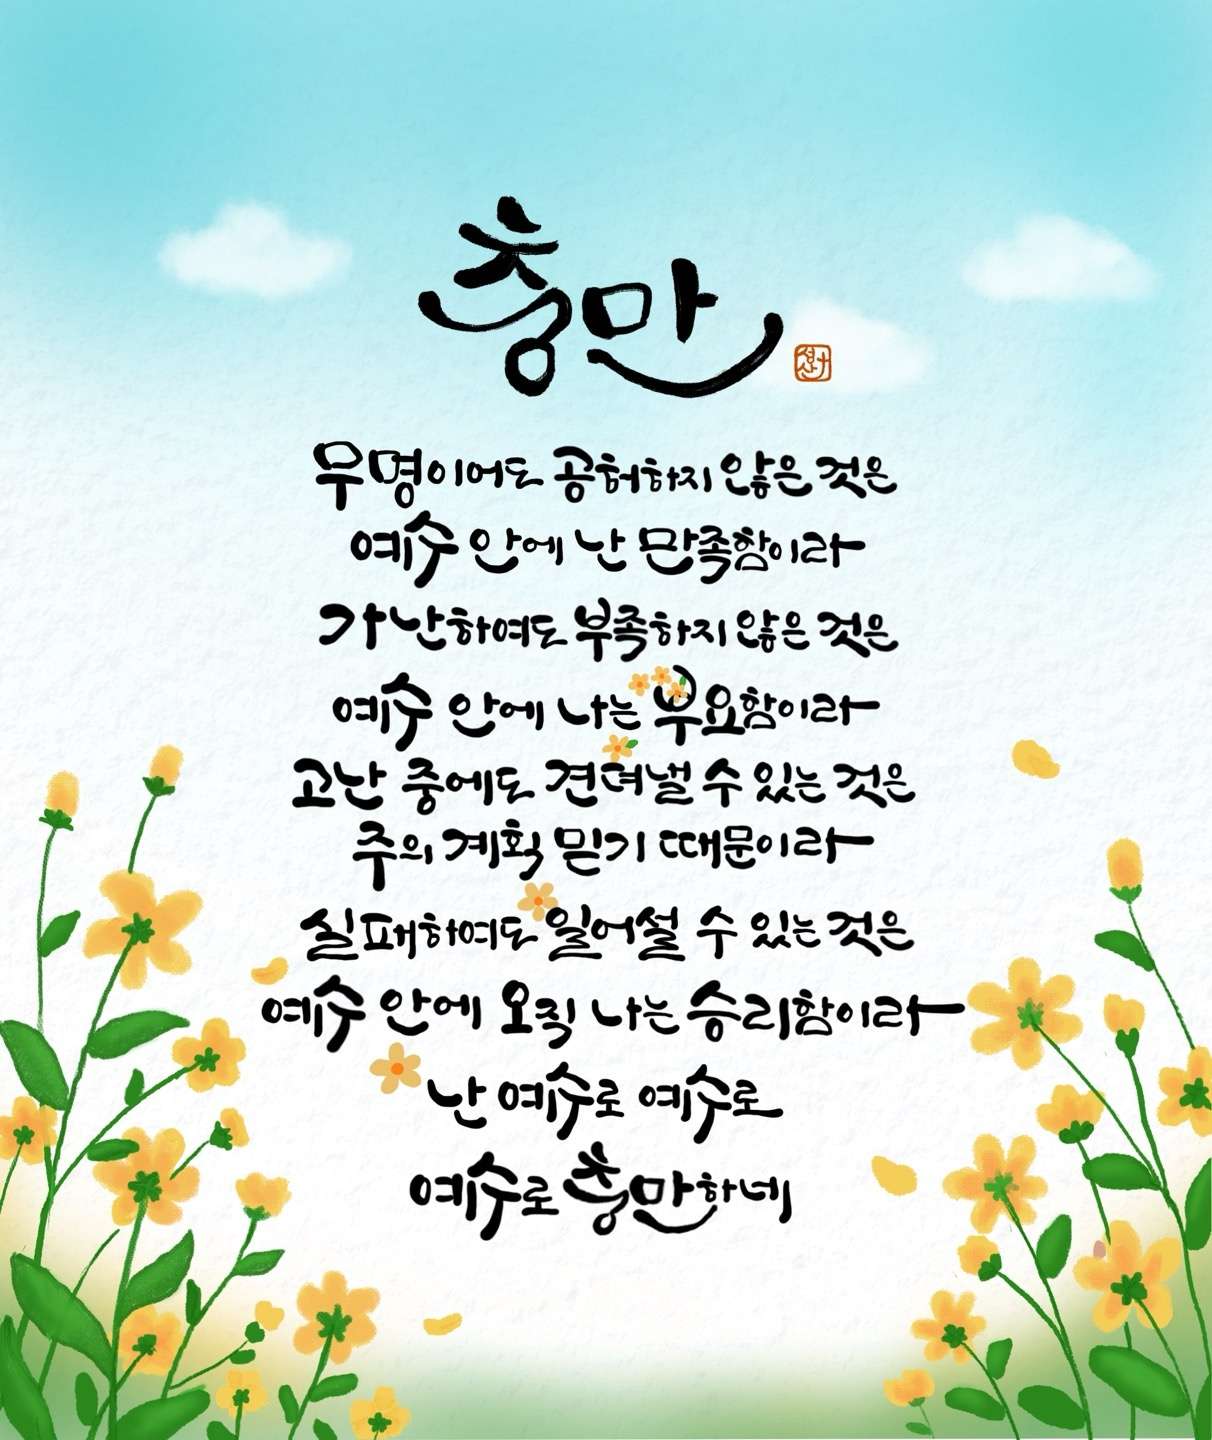 충만
무명이어도 공허하지 않은 것은
예수 안에 난 만족함이라
가난하여도 부족하지 않은 것은
예수 안에 나는 부요함이라
고난 중에도 견뎌낼 수 있는 것은
주의 계획 믿기 때문이라
실패하여도 일어설 수 있는 것은
예수 안에 오직 나는 승리함이라
난 예수로 예수로
예수로 충만하네